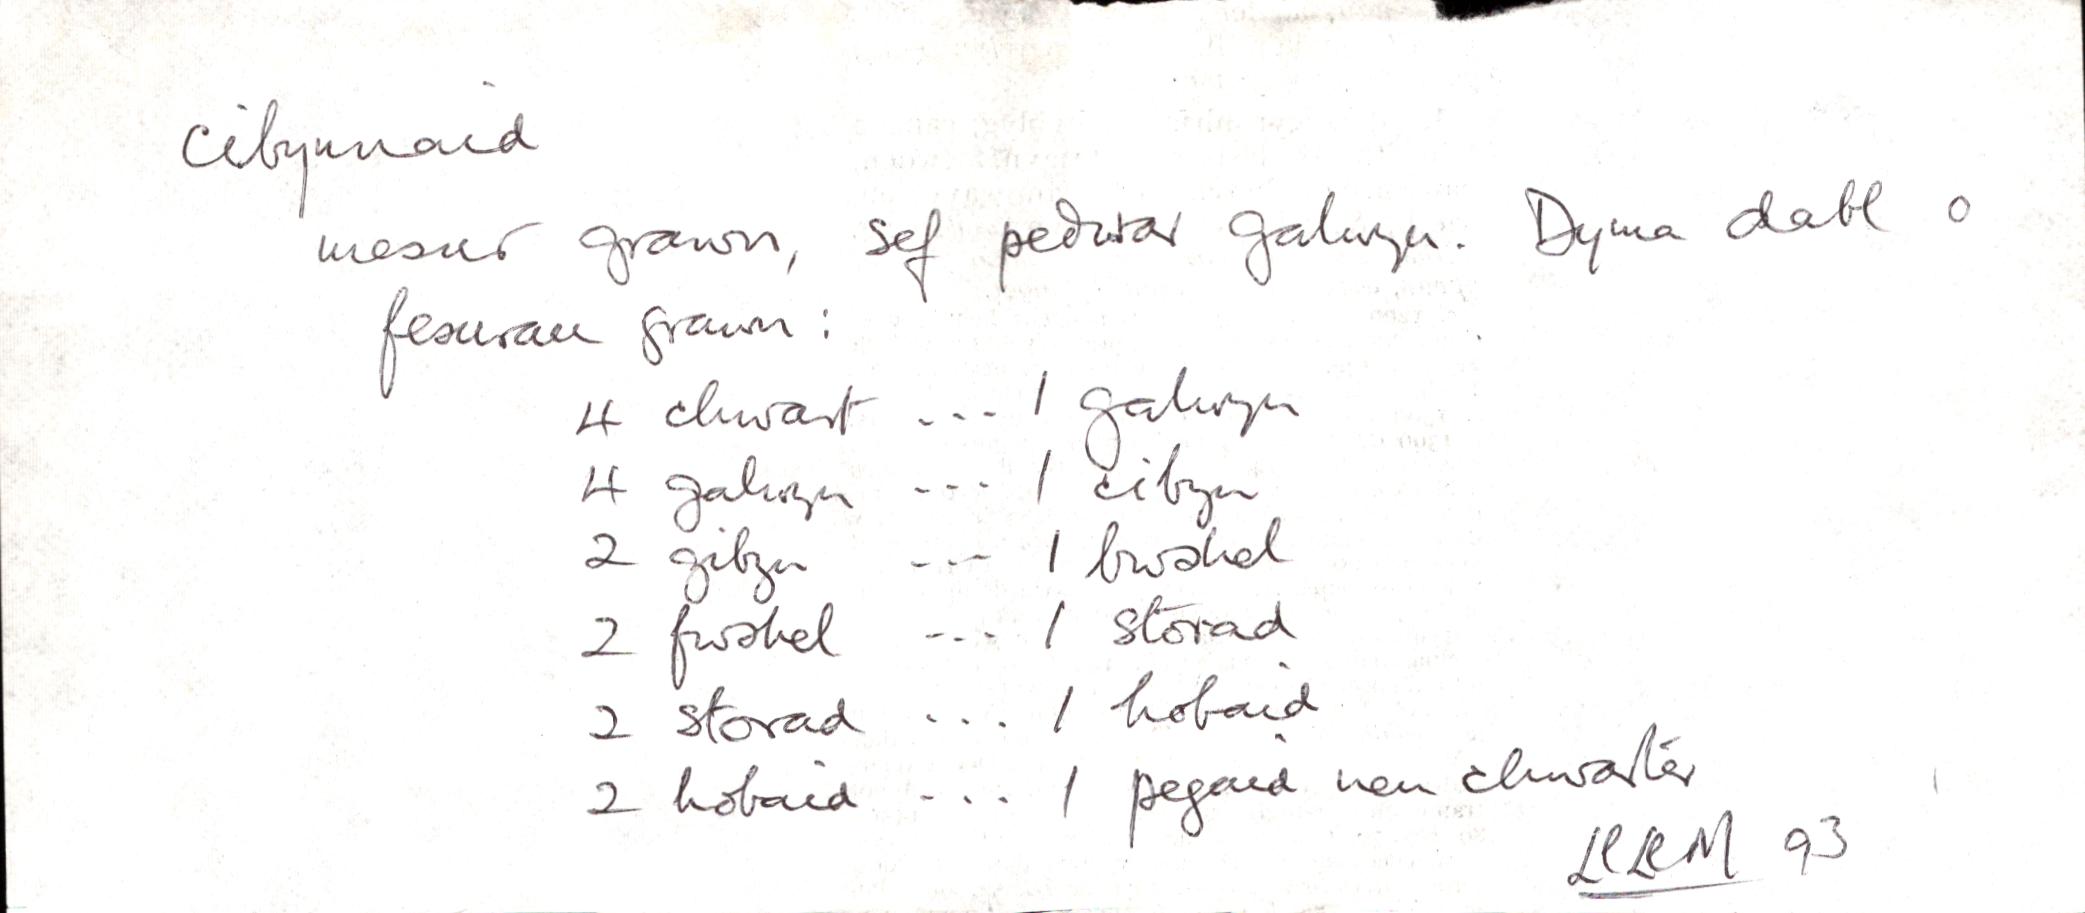 cibynnaid
mesur grawn, sef pedwar galwyn. Dyma dabl o
fesurau grawn:
4 chwart ... 1 galwyn
4 galwyn ... 1 cibyn
2 gibyn ... 1 bwshel
2 fwshel ... 1 storad
2 storad ... 1 hobaid
2 hobaid ... 1 pegaid neu chwarter
LlLlM 93